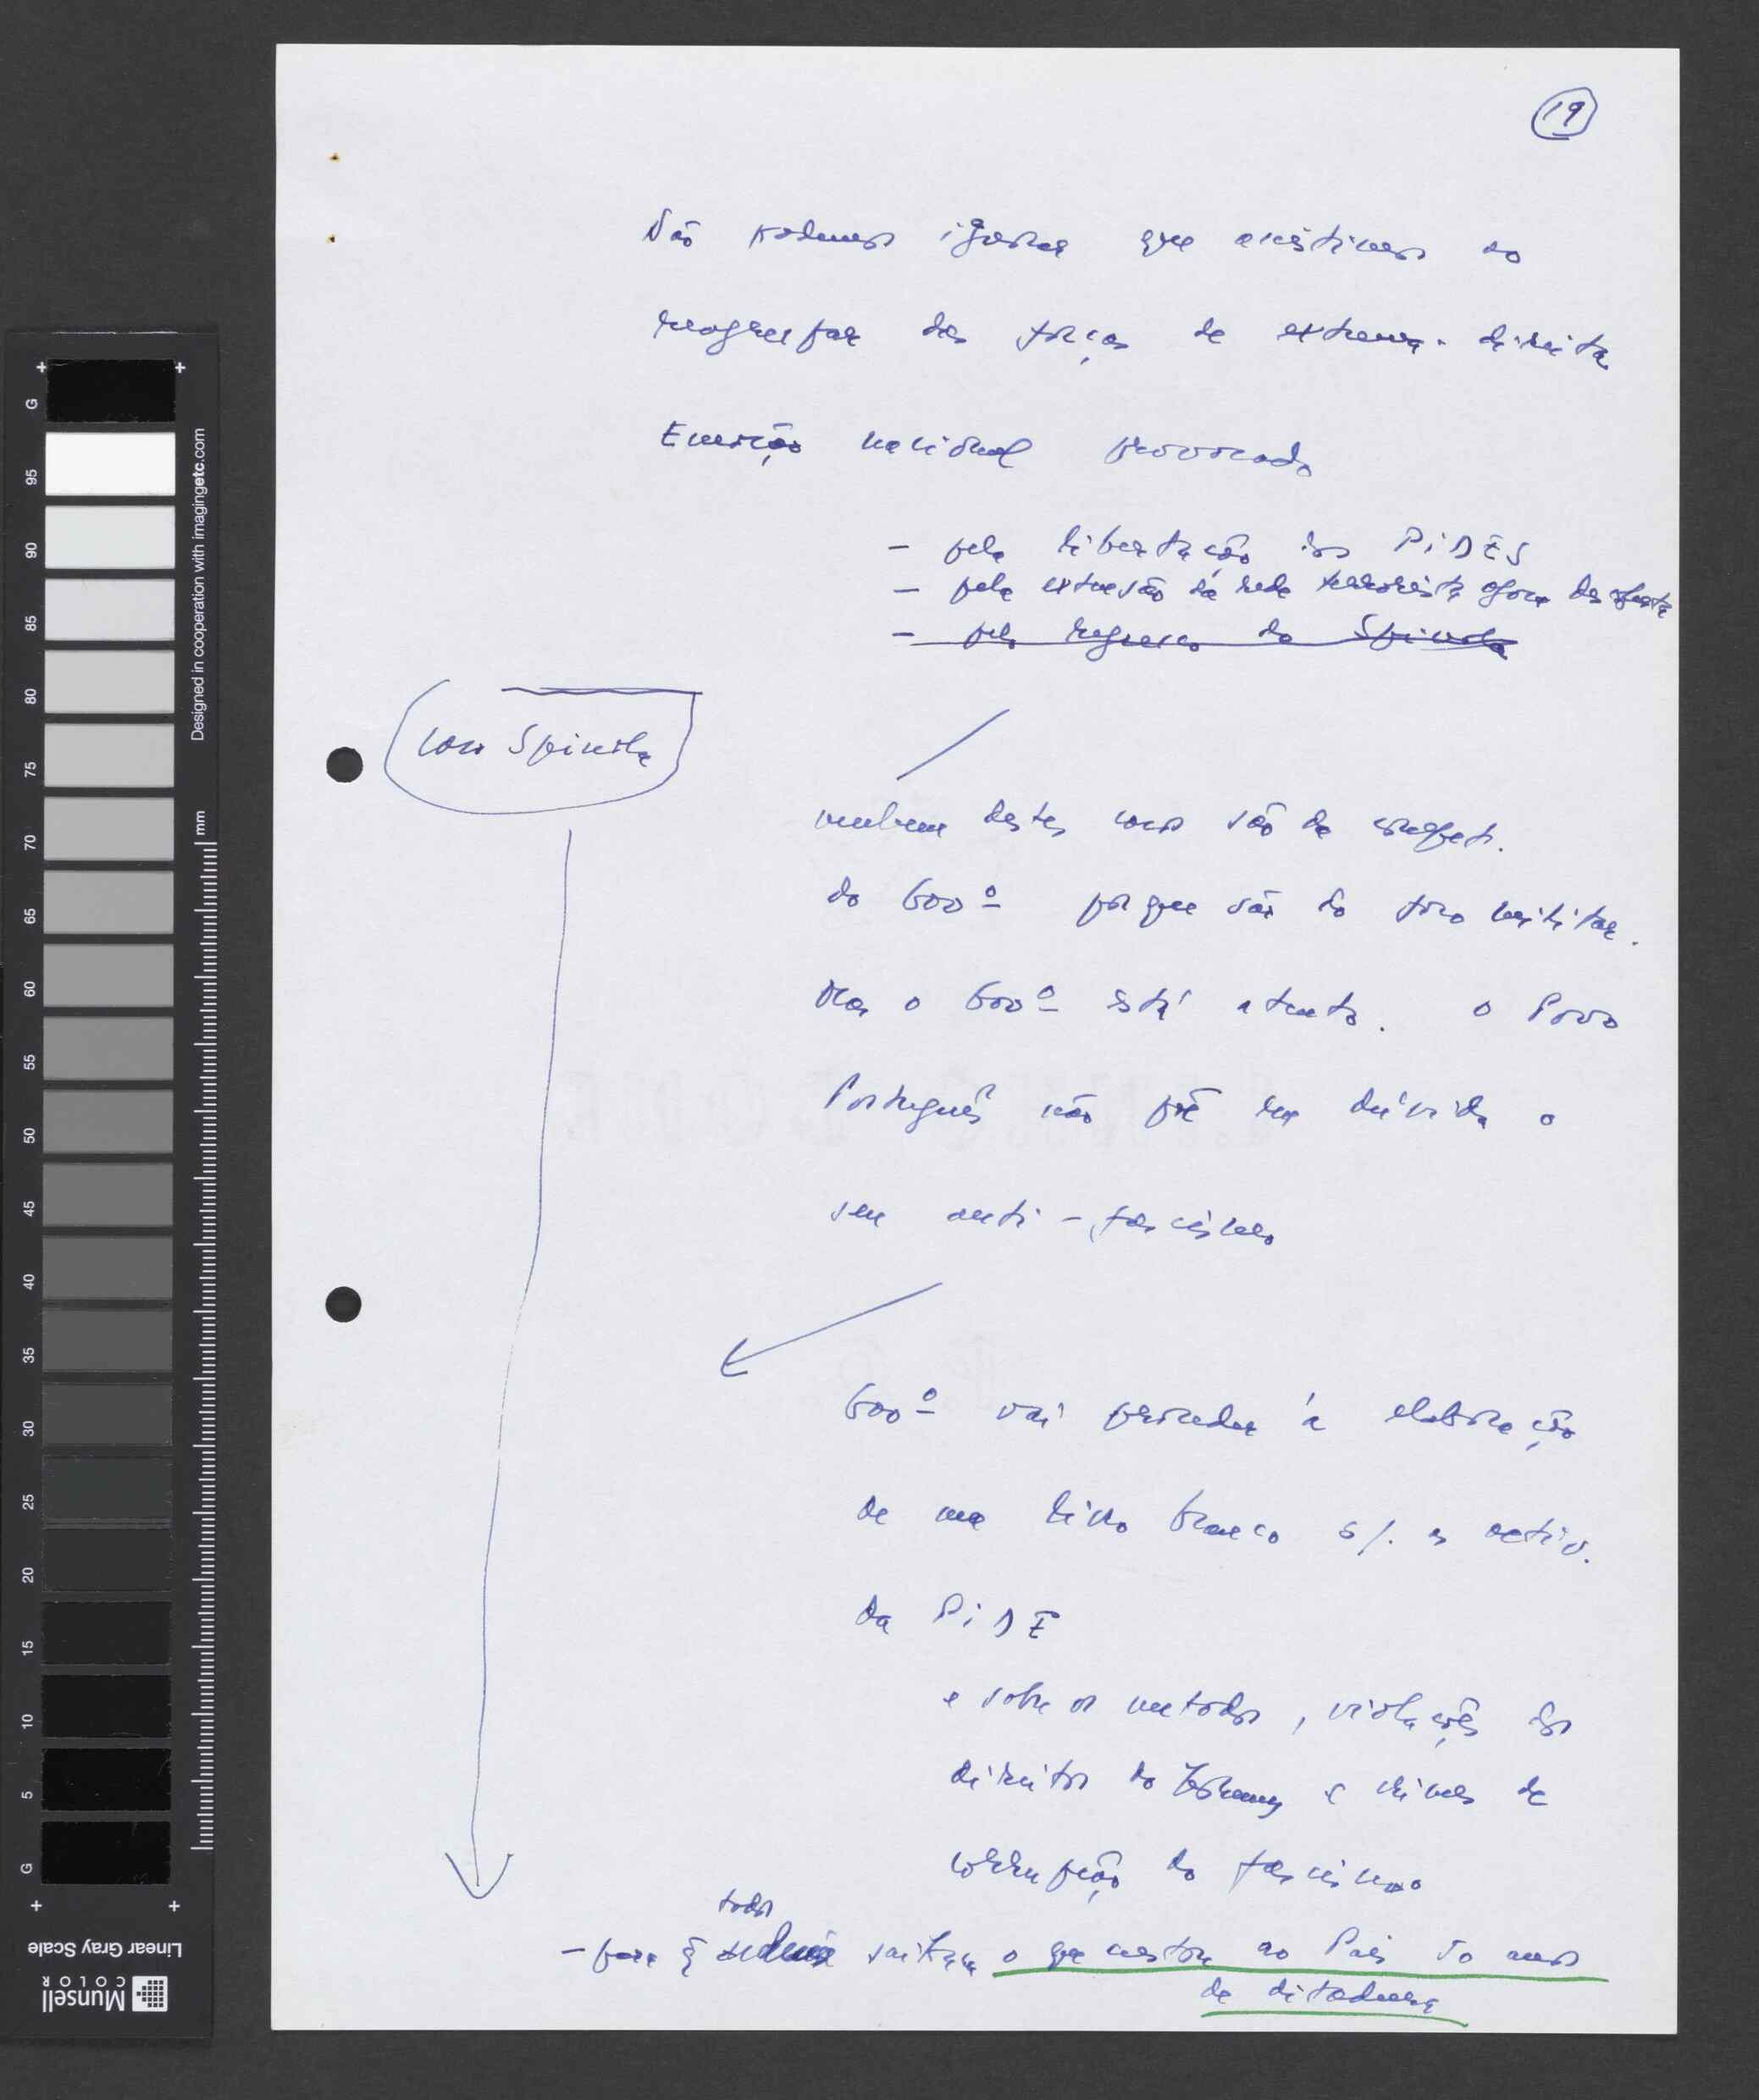 19
Não podemos ignorar que assistimos ao
reagrupar das forças de extrema-direita
Emoção nacional provocada
- pela libertação dos PIDES
- pela extensão da rede terrorista agora descoberta
- pelo regresso do Spinola
Caso Spinola
nenhum destes casos são da compet.
do Govº porque são do foro militar.
Mas o Govº está atento. O Povo
Português não põe em dúvida o
seu anti-fascismo
Govº vai proceder à elaboração
de um livro branco s/. a activ.
da PIDE
e sobre os metodos, violações dos
direitos do Homem e crimes de
corrupção do fascismo
todos
- para q saibam o que custou ao País 50 anos
de ditadura
G
95
90
85
80
75
70
65
60
55
50
45
40
35
30
25
20
15
10
5
G
mm
Designed in cooperation with imagingetc.com
Linear Gray Scale
Munsell
COLOR